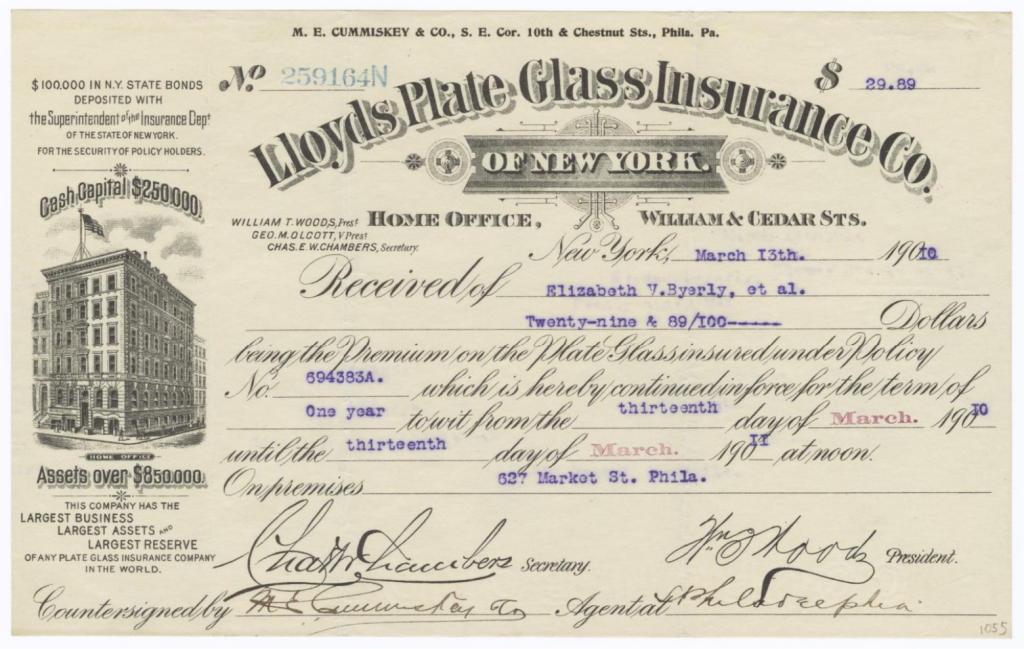 M. E. CUMMISKEY & CO., S. E. Cor. 10th & Chestnut Sts., Phila. Pa.
No 259164N
$ 29.89
$100.000 IN N.Y. STATE BONDS
DEPOSITED WITH
the Superintendent of the Insurance Dept
OF THE STATE OF NEW YORK.
FOR THE SECURITY OF POLICY HOLDERS.
Cash Capital $250.000.
HOME OFFICE
Assets over $850.000.
THIS COMPANY HAS THE
LARGEST BUSINESS
LARGEST ASSETS AND
LARGEST RESERVE
OF ANY PLATE GLASS INSURANCE COMPANY
IN THE WORLD.
Lloyds Plate Glass Insurance Co.
OF NEW YORK.
WILLIAM T. WOODS, Prest
GEO. M. OLCOTT, V Prest
CHAS. E. W. CHAMBERS, Secretary.
HOME OFFICE, WILLIAM & CEDAR STS.
New York, March 13th. 19010
Received of Elizabeth V.Byerly, et al.
Twenty-nine & 89/100------ Dollars
being the Premium on the Plate Glass insured under Policy
No. 694383A. which is hereby continued in force for the term of
One year to wit from the thirteenth day of March. 19010
until the thirteenth day of March. 19011 at noon.
On premises 627 Market St. Phila.
Chas W Chambers Secretary.
Wm T Woods President.
Countersigned by M E Cummiskey Co Agent at Philadelphia
1055